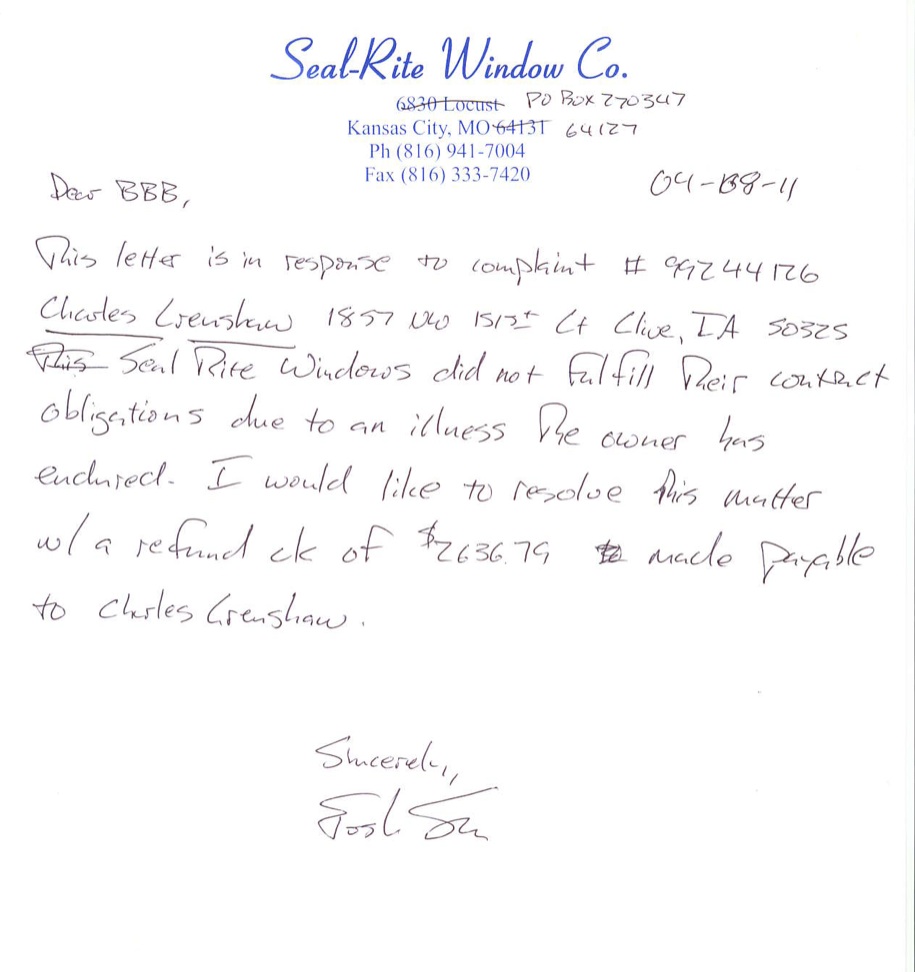 Seal-Rite Window Co.
6830 Locust PO Box 270347
Kansas City, MO 64131 64127
Ph (816) 941-7004
Fax (816) 333-7420
04-08-11
Dear BBB,
This letter is in response to complaint # 99244126
Charles Crenshaw 1857 NW 151st Ct Clive, IA 50325
This Seal Rite Windows did not fulfill their contract
obligations due to an illness the owner has
endured. I would like to resolve this matter
w/ a refund ck of $2636.79 made payable
to Charles Crenshaw.
Sincerely,